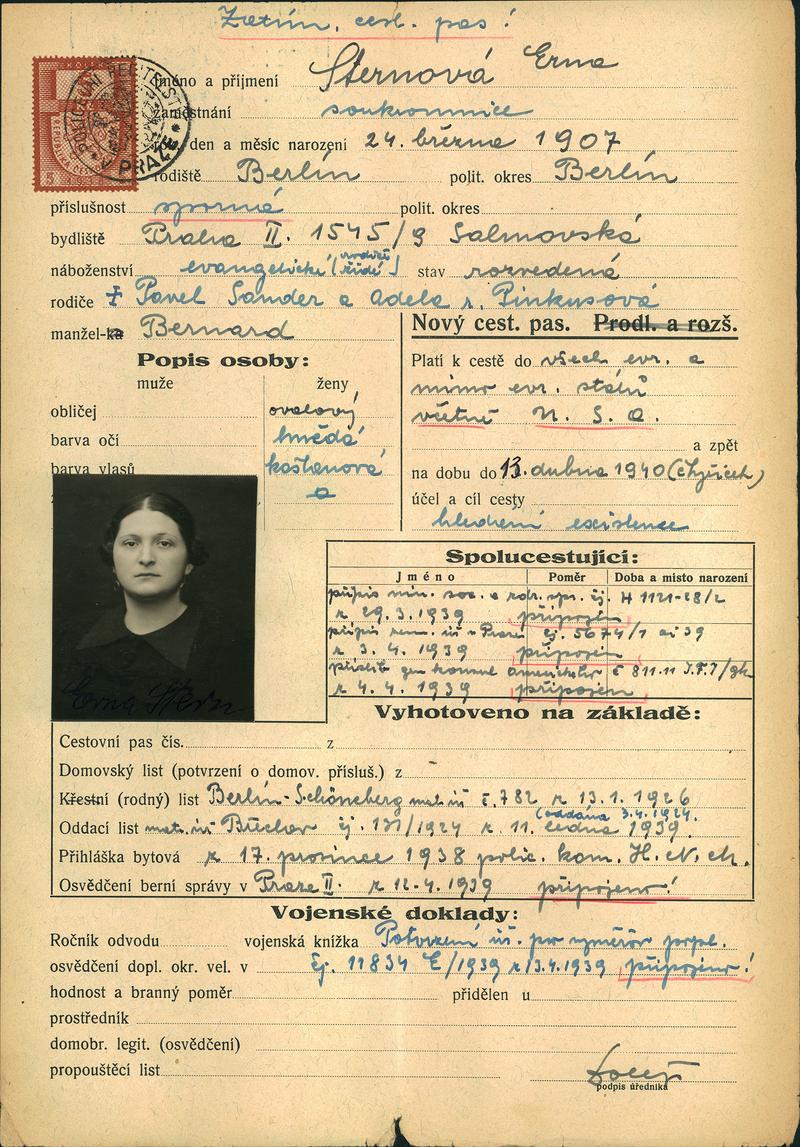 Zatím. cest. pas!
jméno a příjmení Sternová Erna
zaměstnání soukromnice
rok, den a měsíc narození 24. března 1907
rodiště Berlín polit. okres Berlín
příslušnost sporná polit. okres
bydliště Praha II. 1545/9 Salmovská
náboženství evangelické stav rozvedená
rodiče Pavel Sander a Adela r. Pinkusová
manžel-ka Bernard
Nový cest. pas. Prodl. a rozš.
Popis osoby:
muže ženy
obličej oválový
barva očí hnědá
barva vlasů kaštanová
a
Platí k cestě do všech evr. a
mimo evr. států
včetně U. S. A.
a zpět
na dobu do 13. dubna 1940
účel a cíl cesty
hledání existence
Spolucestující:
Jméno Poměr Doba a místo narození
přípis min. soc. a zdr. spr. čj. H 1121-28/2
z 29.3.1939 připojen
přípis v Praze čj. 5674/1 ai 39
z 3.4.1939 připojen
gen konsul č 811.11
z 4.4.1939 připojen
Erna Stern
Vyhotoveno na základě:
Cestovní pas čís. z
Domovský list (potvrzení o domov. přísluš.) z
Křestní (rodný) list Berlín-Schöneberg mat. úř č. 782 z 13.1.1926
(oddána 3.4.1924.
Oddací list mat. úř čj. 131/1924 z 11. ledna 1939.
Přihláška bytová z 17. prosince 1938 polic. kom. H. N. M.
Osvědčení berní správy v Praze II. z 12.4.1939 připojeno!
Vojenské doklady:
Ročník odvodu vojenská knížka Potvrzení úř. pro popl.
osvědčení dopl. okr. vel. v čj. 11834 E/1939 z 13.4.1939 připojeno!
hodnost a branný poměr přidělen u
prostředník
domobr. legit. (osvědčení)
propouštěcí list
podpis úředníka